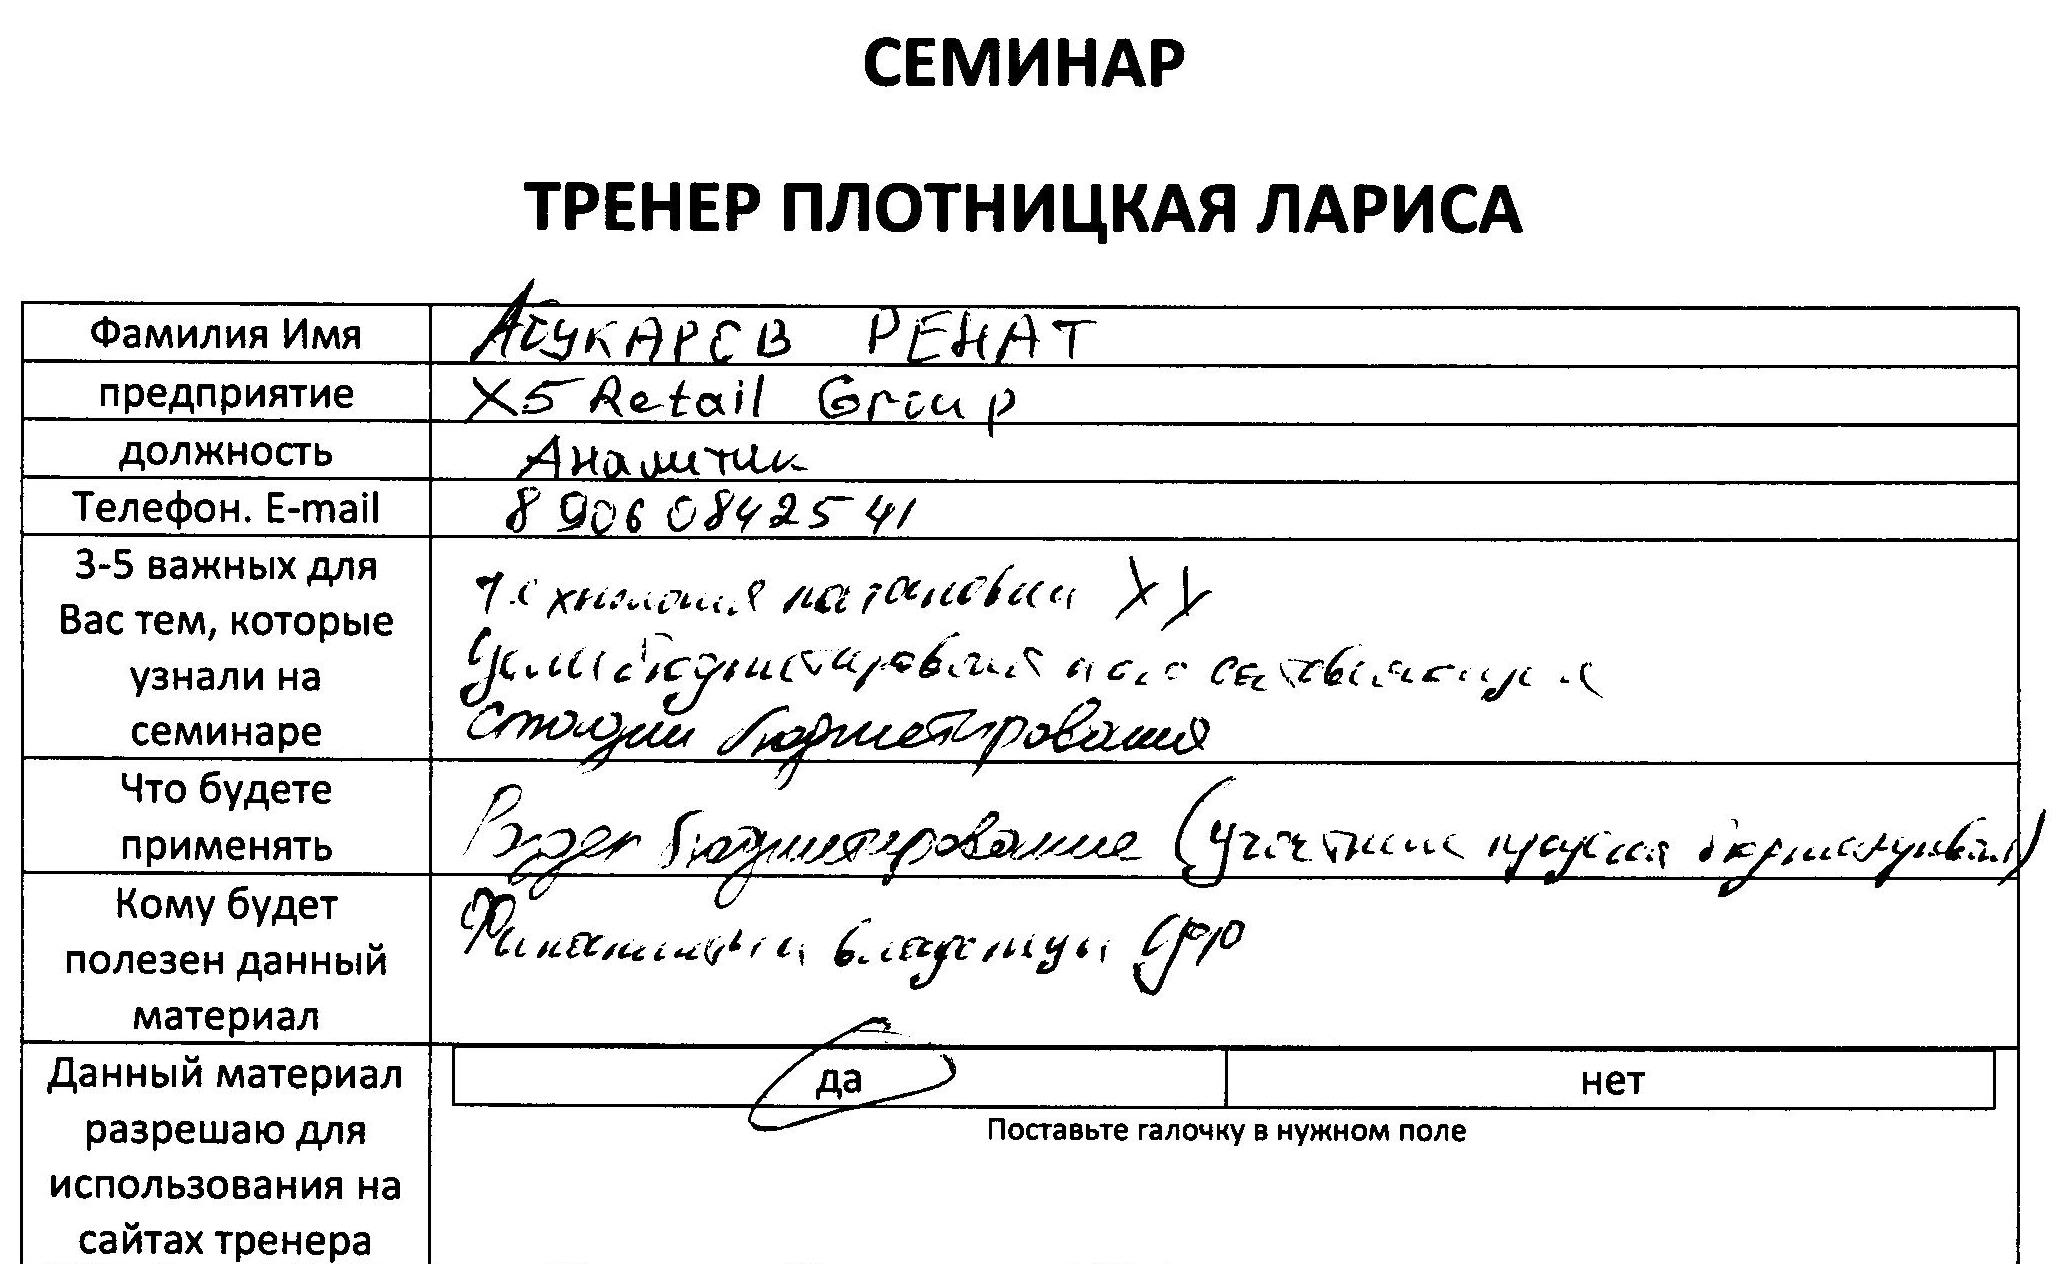 СЕМИНАР
ТРЕНЕР ПЛОТНИЦКАЯ ЛАРИСА
Фамилия Имя
АБУКАРОВ РЕНАТ
предприятие
X5 Retail Group
должность
Аналитик
Телефон. E-mail
8 906 0842541
3-5 важных для
Вас тем, которые
узнали на
семинаре
Технология постановки
бюджетирования
Стадии бюджетирования
Что будете
применять
бюджетирование (участник процесса
Кому будет
полезен данный
материал
владельцы
Данный материал
разрешаю для
использования на
сайтах тренера
да
нет
Поставьте галочку в нужном поле